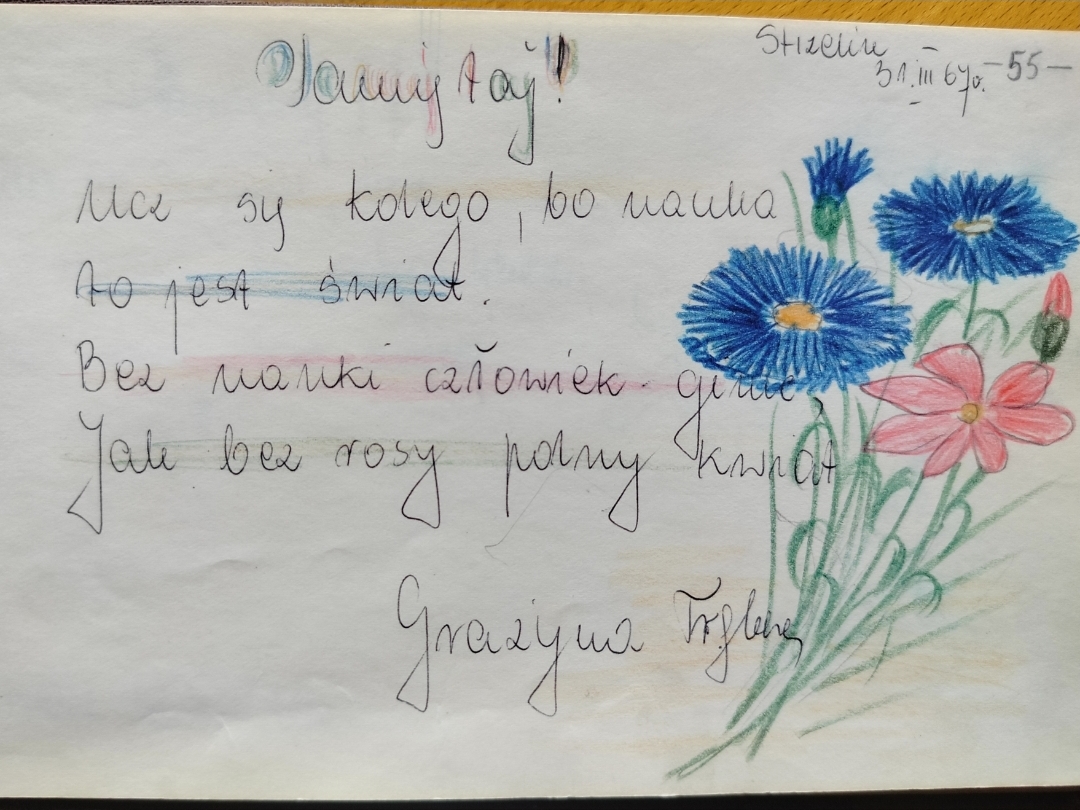 Strzelin
31.III 67r. -55-
Pamiętaj!
Ucz się kolego, bo nauka
to jest świat.
Bez nauki człowiek ginie,
Jak bez rosy polny kwiat
Grażyna